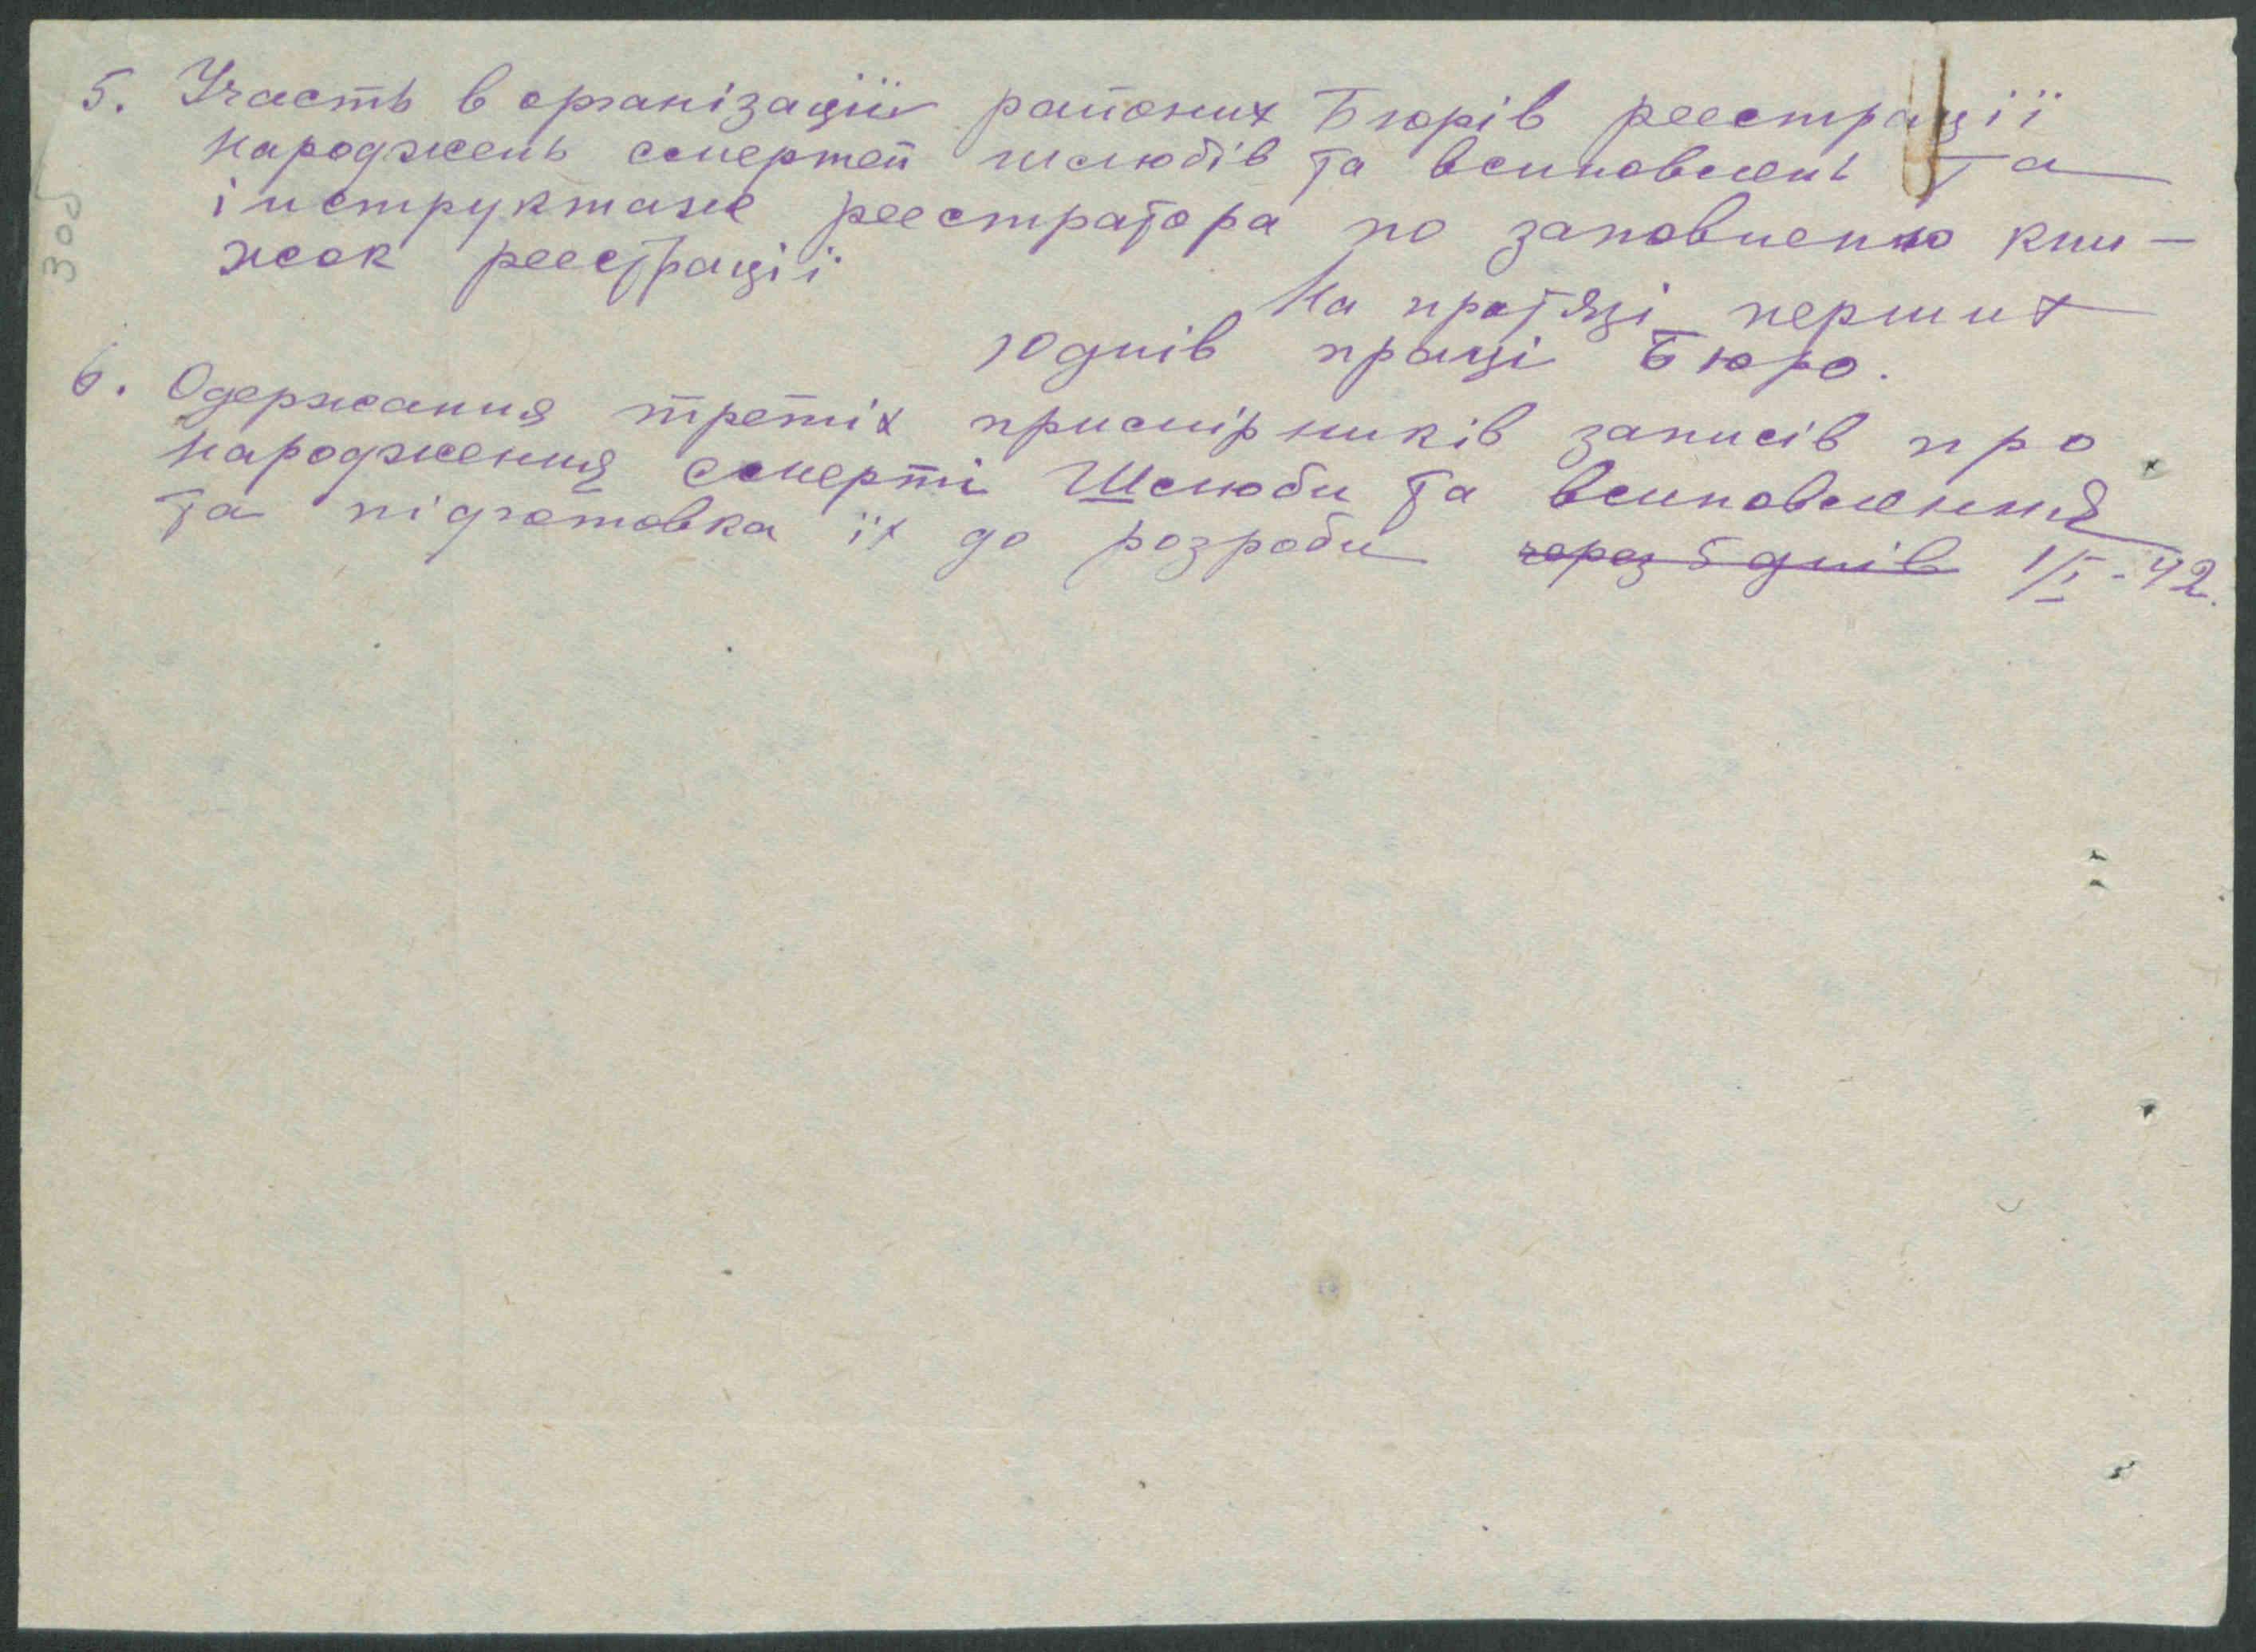 5. Участь в організації районих Бюрів реестрації
народжень смертей шлюбів та всиновлень та
інструктаже реестратора по заповненю кни-
жок реестрації
На протязі перших
10 днів праці Бюро.
6. Одержання третіх примірників записів про
народження смерті Шлюби та всиновлення
та підготовка їх до розроби ~~через 5 днів~~ 1/I-42.
30об